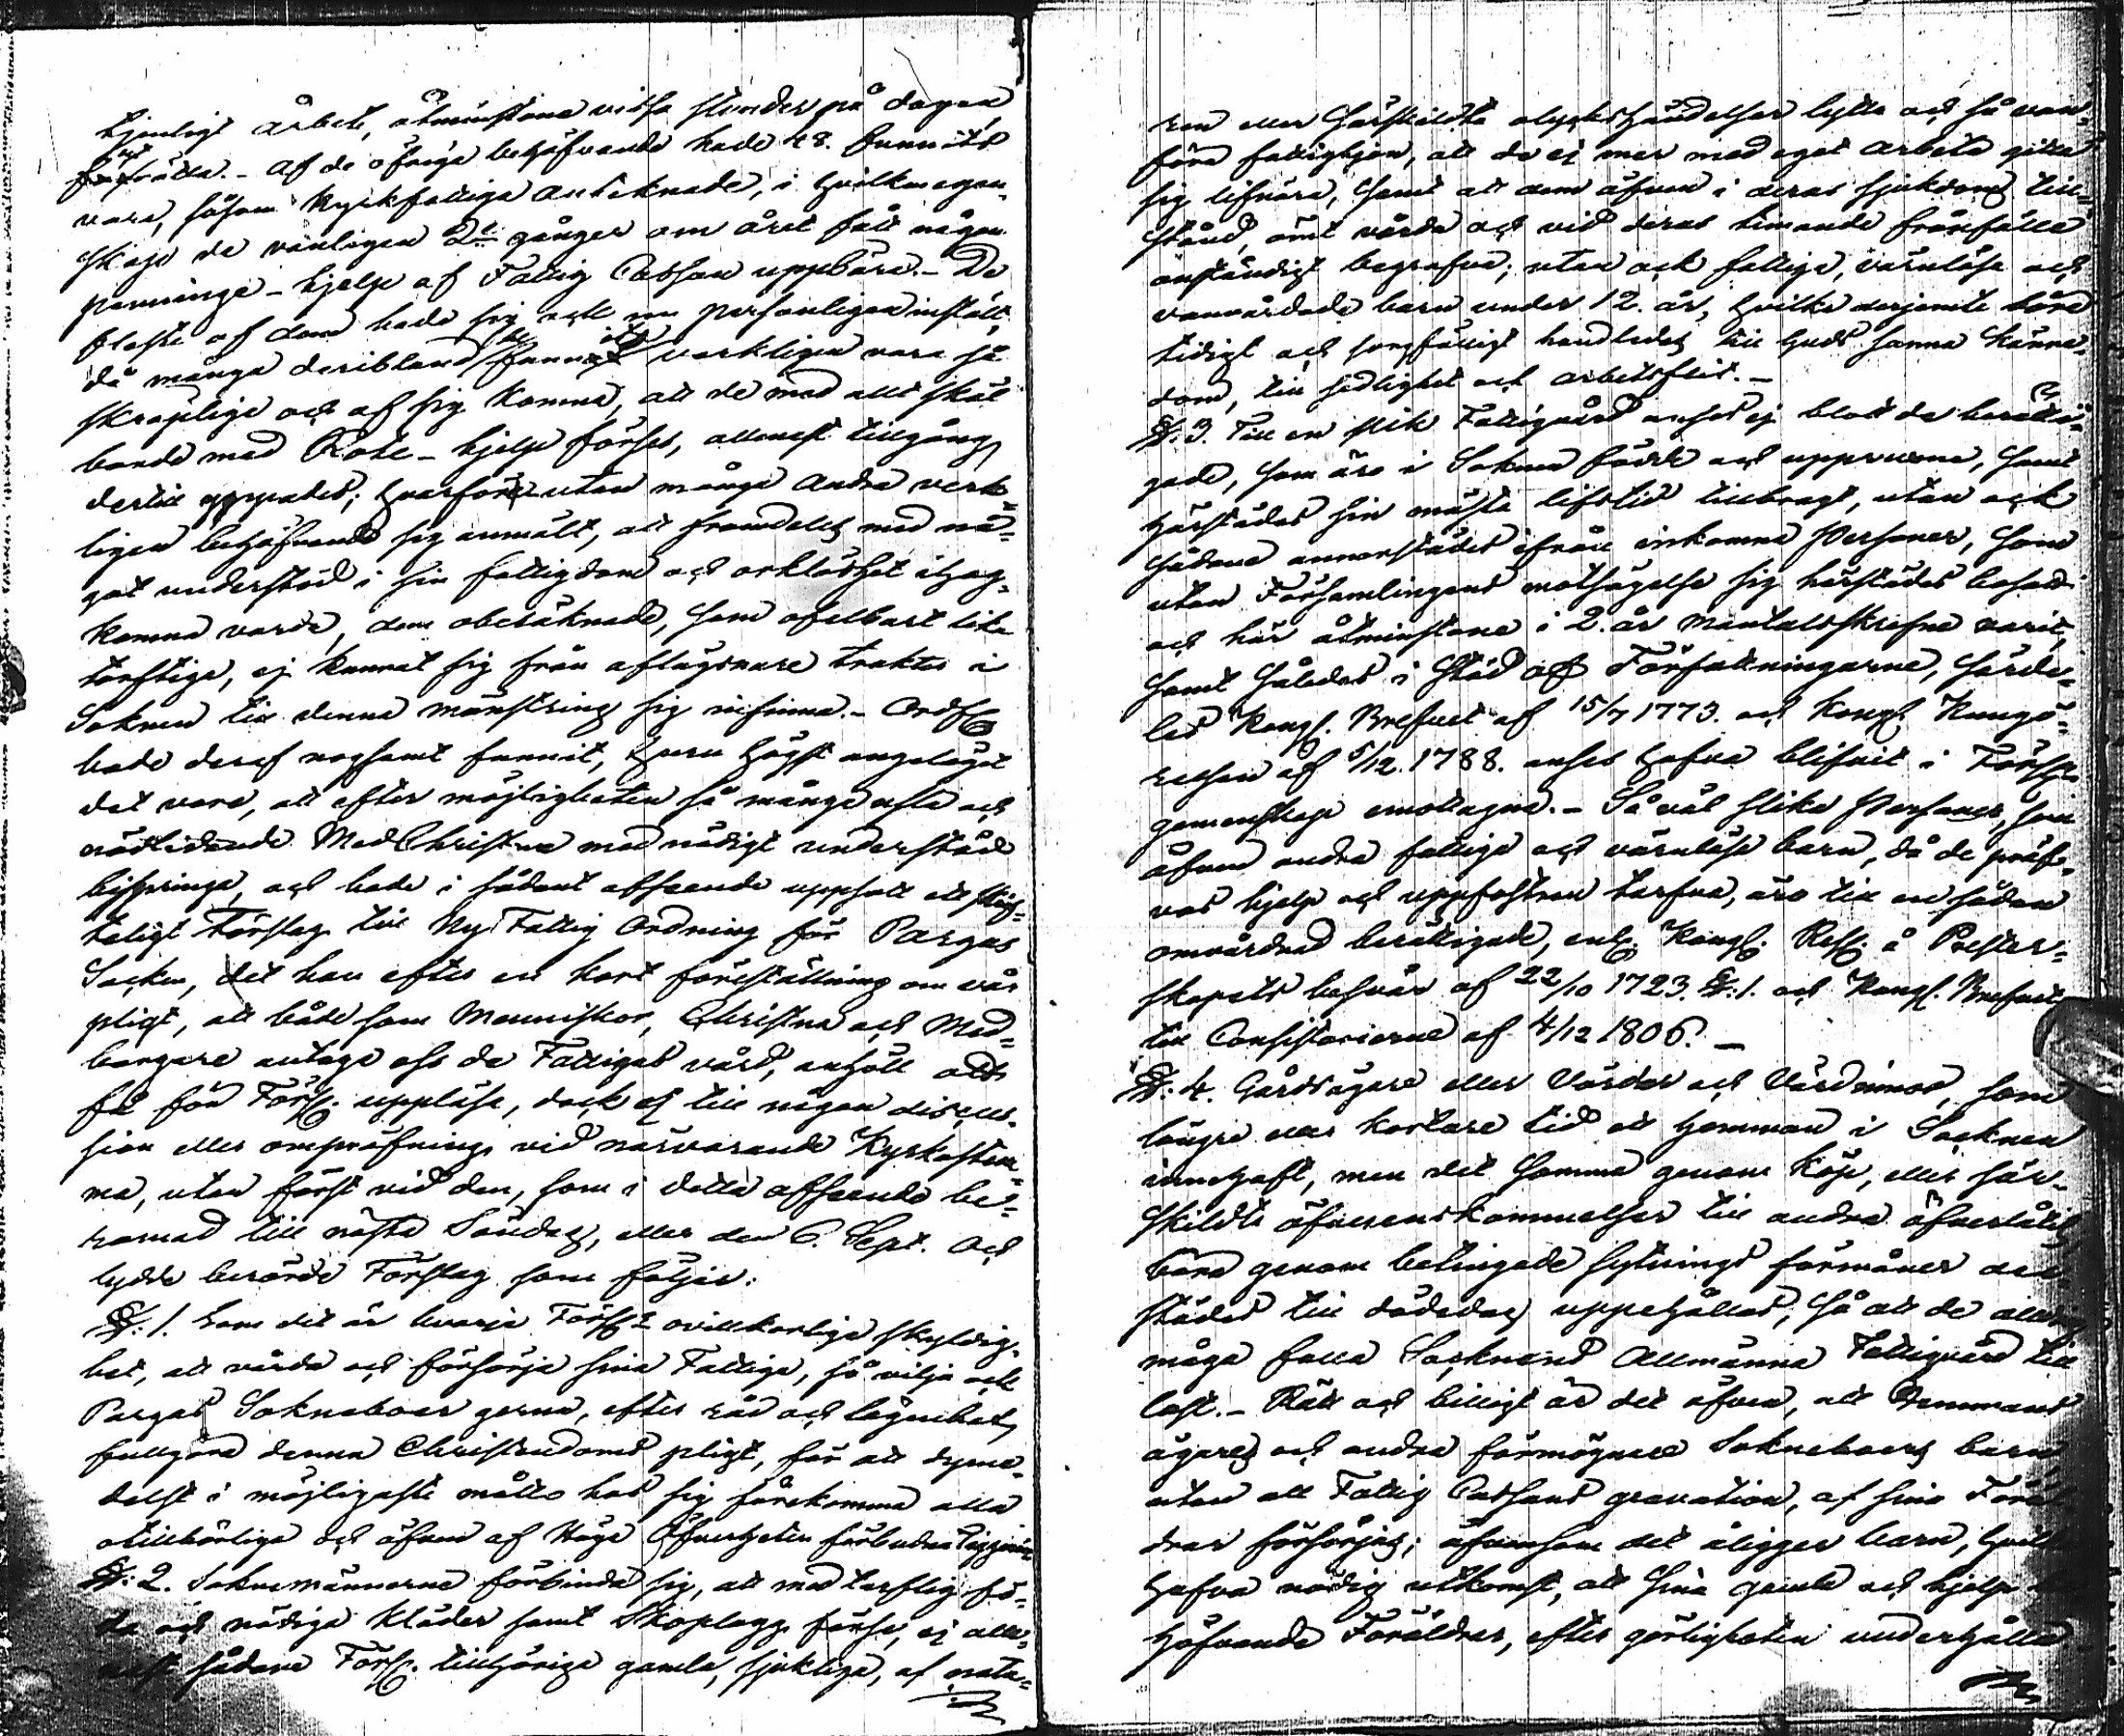 tjenligt arbete, åtminstone vissa stunder på dagen,
förrätta. – Af de öfriga behöfvande hade 48. funnits
vara, såsom Kyrkfattiga antecknade, i hvilken egen-
skap de vanligen 2:e gånger om året fått någon
penninge-hjelp af Fattig Cassan uppbära. – De
fleste af dem hade sig ock nu personligen inställt,
då många deribland funnits verkligen vara så
skröplige och af sig komne, att de med allt skäl
borde med Rote-hjelp förses, allenast tillgång
dertill uppgades; hvarförutan många andra verk-
ligen behöfvande sig anmält, att framdeles med nå-
got understöd i sin fattigdom och orklöshet ihog-
komne varda, dem oberäknade, som ofelbart lika
torftige, ej kunnat sig från aflägsnare trakter i
Soknen till denna mönstring sig infinna. – Ordf.
hade deraf nogsamt funnit, huru högst angeläget
det vore, att efter möjligheten så många usla och
nödlidande MedChristna med nödigt understöd
bispringa, och hade i sådant afseende uppsatt ett skrift-
teligt Förslag till Ny Fattig Ordning för Pargas
Socken, det han efter en kort föreställning om vår
pligt, att både som Menniskor, Christna och Med-
borgare antaga oss de Fattigas vård, anhöll att
få för Förs. uppläsa, dock ej till någon discus-
sion eller ompröfning vid närvarande Kyrkostäm-
ma, utan först vid den, som i detta afseende be-
ramad till nästa Söndag, eller den 6. Sept. Och
lydde berörde Förslag som följer:
§. 1. Som det är hvarje Förs:s ovillkorliga skyldig-
het, att vårda och försörja sina Fattiga, så vilja ock
Pargas Sokneboer gerna, efter råd och lägenhet,
fullgöra denna Christendoms pligt, för att dyme-
delst i möjligaste måtto hos sig förekomma alla
otillbörliga och äfven af Höga Öfverheten förbudna tiggerier
§. 2. Soknemännerne förbinda sig, att med torftig fö-
da och nödiga kläder samt Skoplagg förse, ej alle-
nast sådane Förs. tillhörige gamla, sjukliga, af natu-
ren eller särskildta olyckshändelser lytta och så van-
föra fattighjon, att de ej mer med eget arbete gitta
sig lifnära, samt att dem äfven i deras sjukdoms till-
stånd, ömt vårda och vid deras timande frånfälle
anständigt begrafva; utan ock fattige, värnlösa och
vanvårdade barn under 12. år, hvilka derjemte böra
tidigt och sorgfälligt handledas till Guds sanna känne-
dom, till sedlighet och arbetsflit. –
§. 3. Till en slik Fattigvård anses ej blott de berätti-
gade, som äro i Soknen födde och uppvuxne, samt
härstädes sin mesta lifstid tillbragt, utan ock
sådane annorstädes ifrån inkomne Personer, som
utan Församlingens motsägelse sig härstädes bosatt
och här åtminstone i 2. år Mantalsskrefne varit,
samt således i stöd af Författningarne, särde-
les Kongl. Brefvet af 15/7 1773. och Kongl. Kungö-
relsen af 5/12. 1788. anses hafva blifvit i Förs:s
gemenskap emottagne. – Så väl slika Personer, som
äfven andra fattiga och värnlösa barn, då de pröf-
vas hjelp och uppfostran tarfva, äro till en sådan
omvårdnad berättigade, enl. Kongl. Resl. å Prester-
skapets besvär af 22/10 1723. §. 1. och Kongl. Brefvet
till Consistorierne af 4/12 1806. –
§. 4. Gårdsägare eller Värdar och Värdinnor, som
längre eller kortare tid ett hemman i Socknen
innehaft, men det samma genom köp, eller sär-
skildte öfverenskommelser till andra öfverlåtit,
böra genom betingade sytnings förmåner der-
städes till dödedag uppehållas, så att de aldrig
måga falla Socknens Allmänna Fattigvård till
last. – Rätt och billigt är det äfven, att Hemmans
ägares och andra förmögnare Sokneboers barn,
utan all Fattig Cassans gravation, af sina Föräl-
drar försörjas; äfvensom det åligger barn, hvilka
hafva nödig utkomst, att sina gamla och hjelp be-
höfvande Föräldrar, efter görligheten underhålla